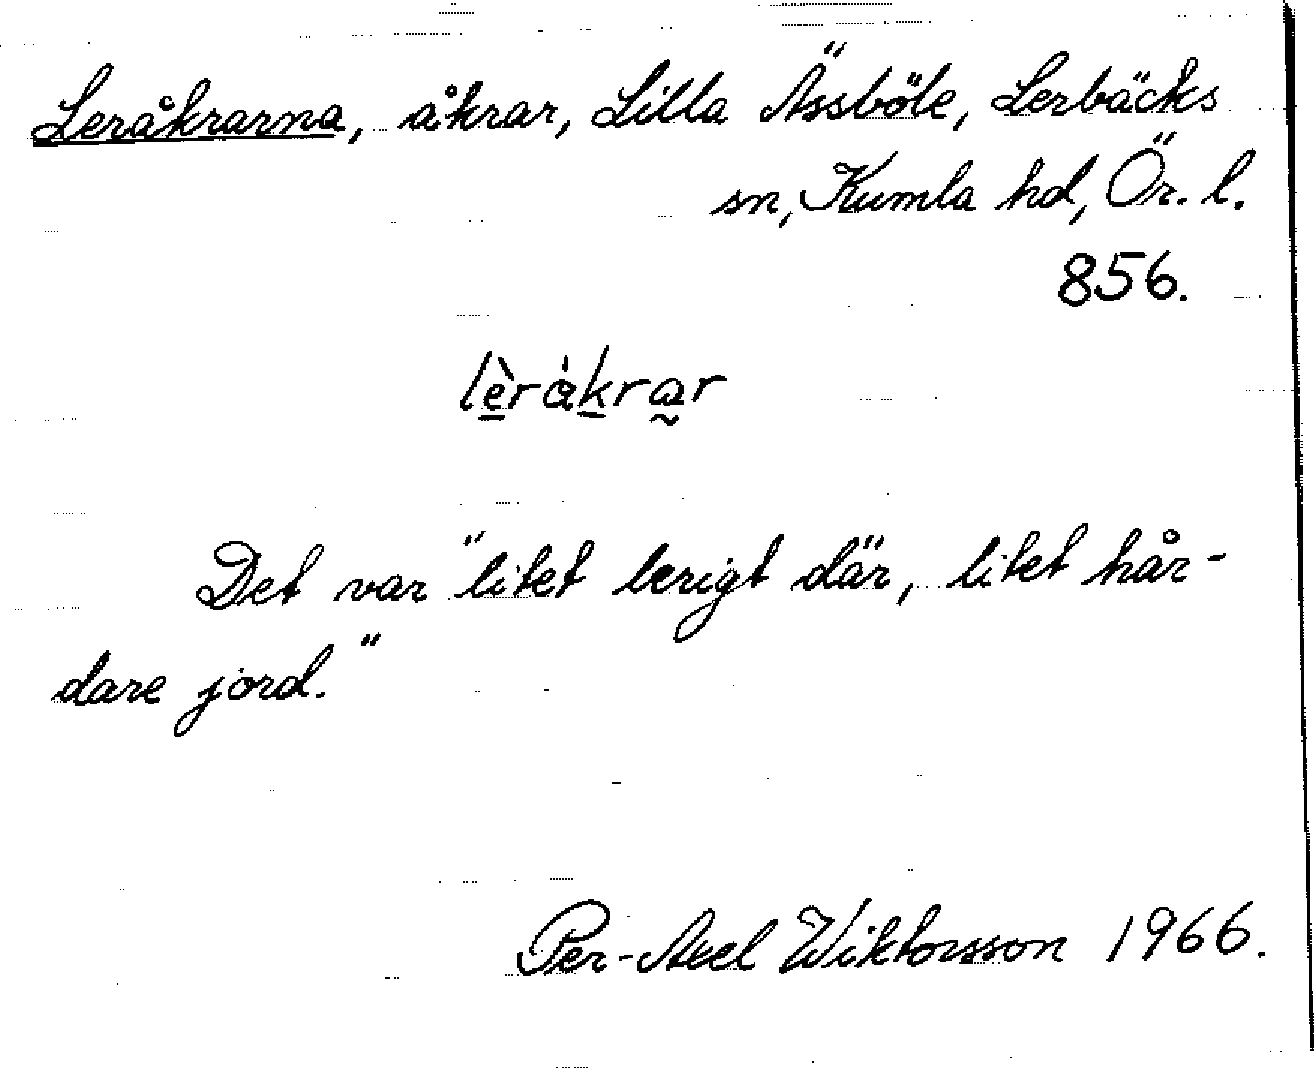 Leråkrarna, åkrar, Lilla Ässböle, Lerbäcks
sn, Kumla hd, Ör. l.
856.
lèråkrar
Det var "litet lerigt där, litet hår-
dare jord."
Per-Axel Wiktorsson 1966.